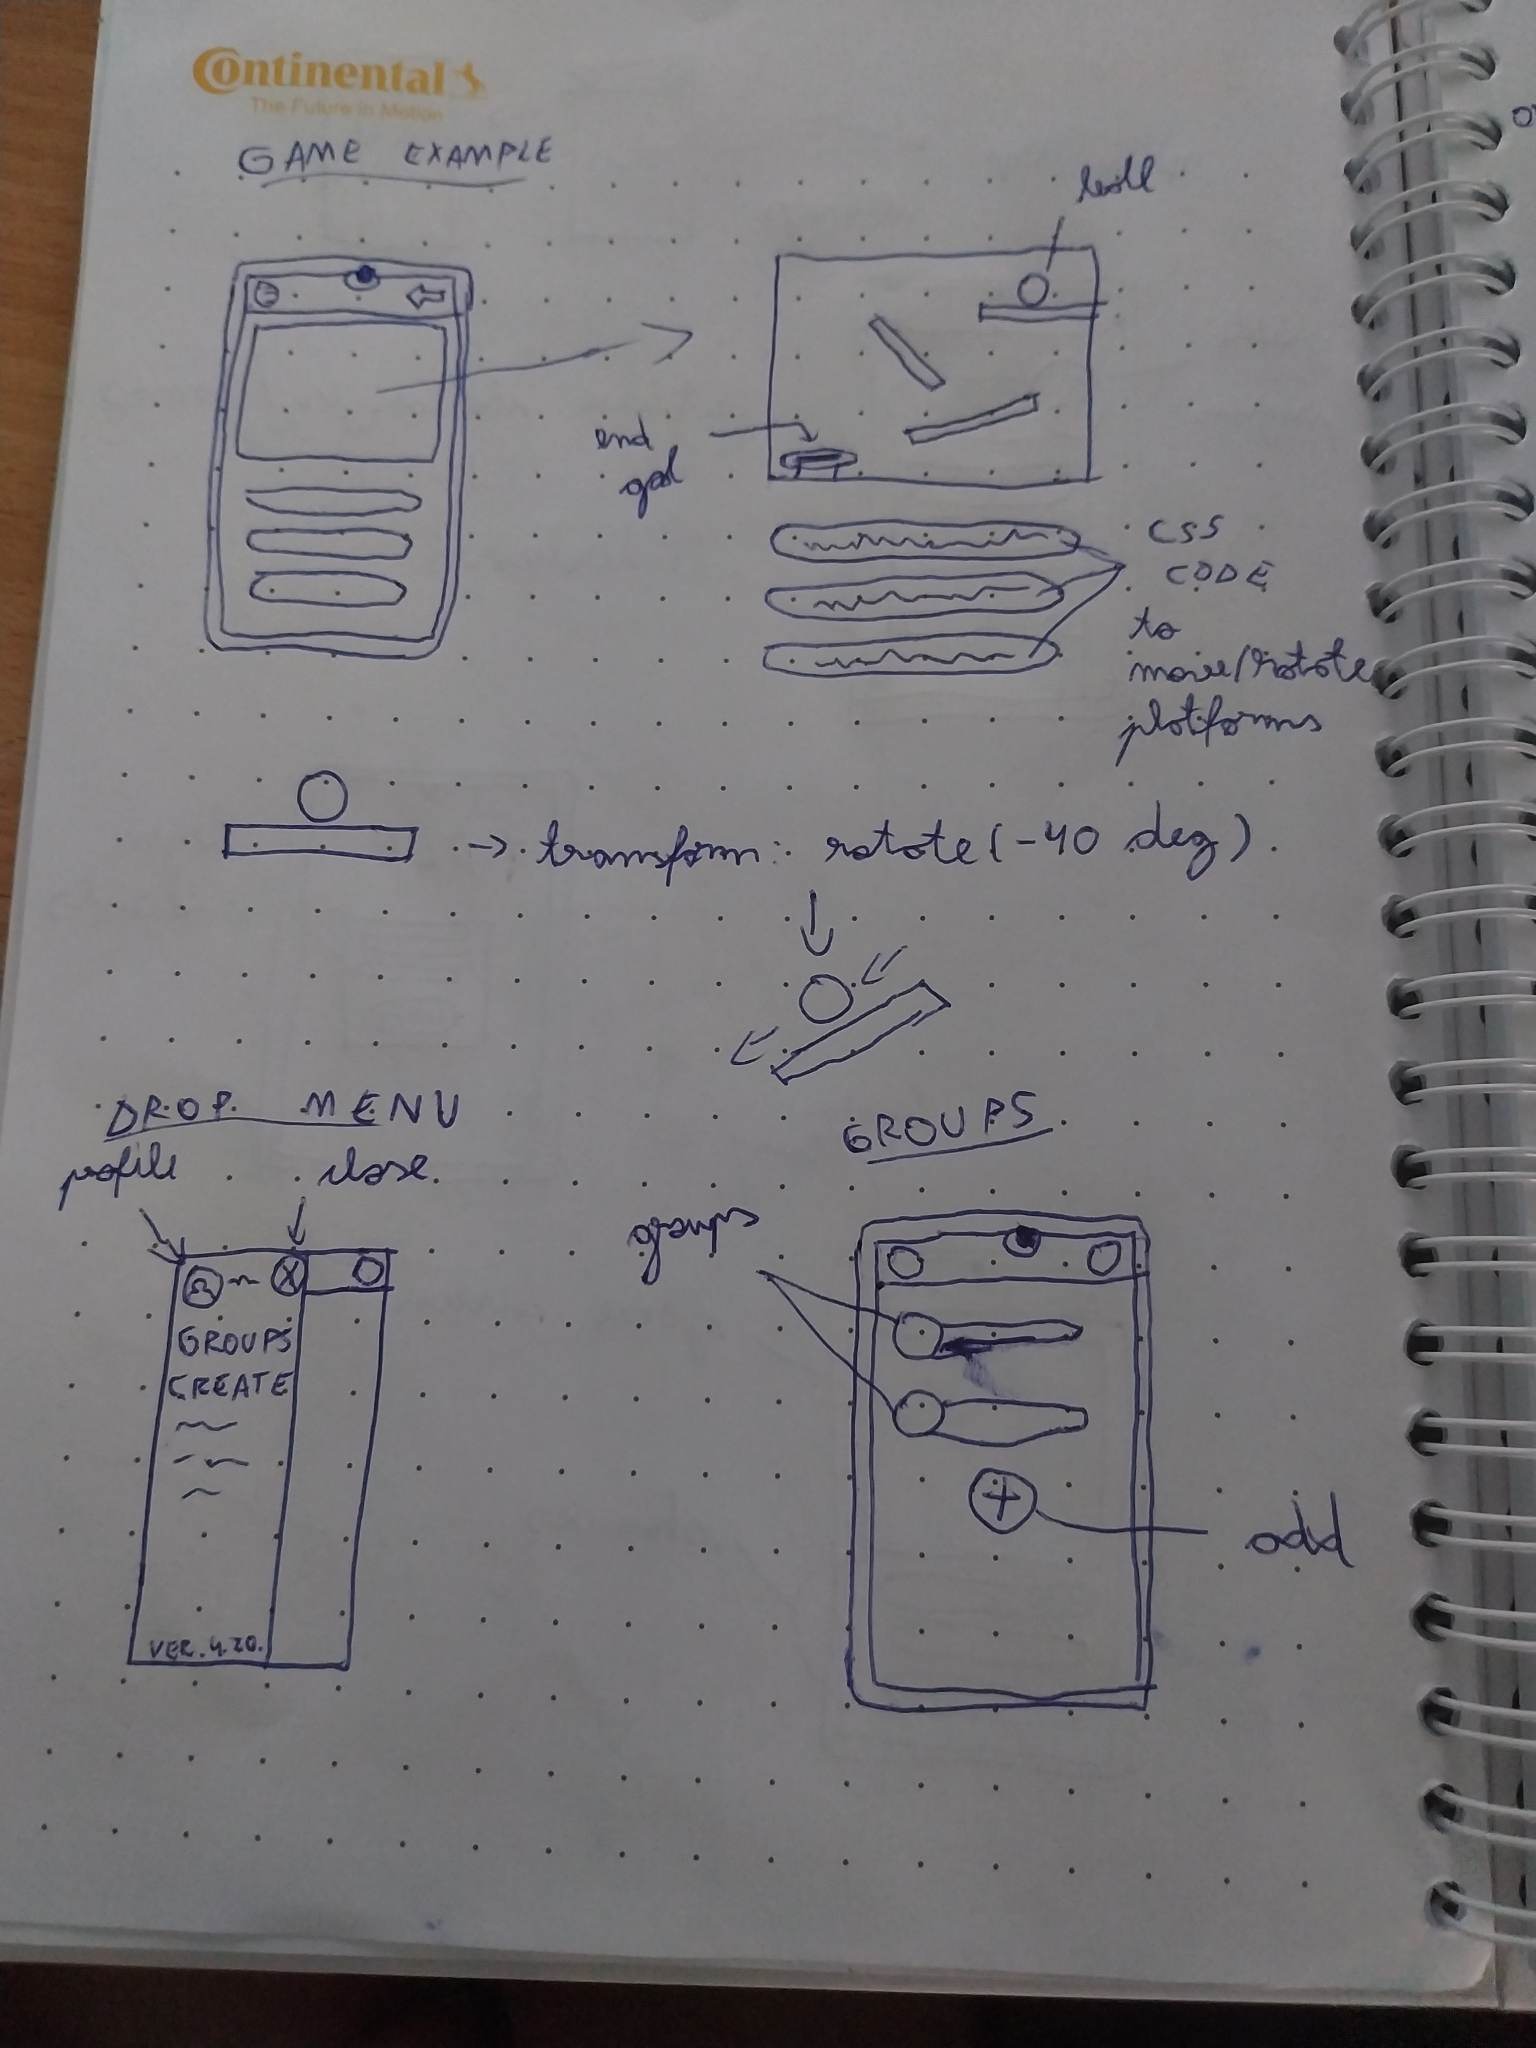 Continental
The Future in Motion
GAME EXAMPLE
ball
end
goal
CSS
CODE
to
move/rotate
platforms
→ transform: rotate(-40 deg)
DROP MENU
profile close
GROUPS
CREATE
VER. 4.20.
GROUPS
groups
add